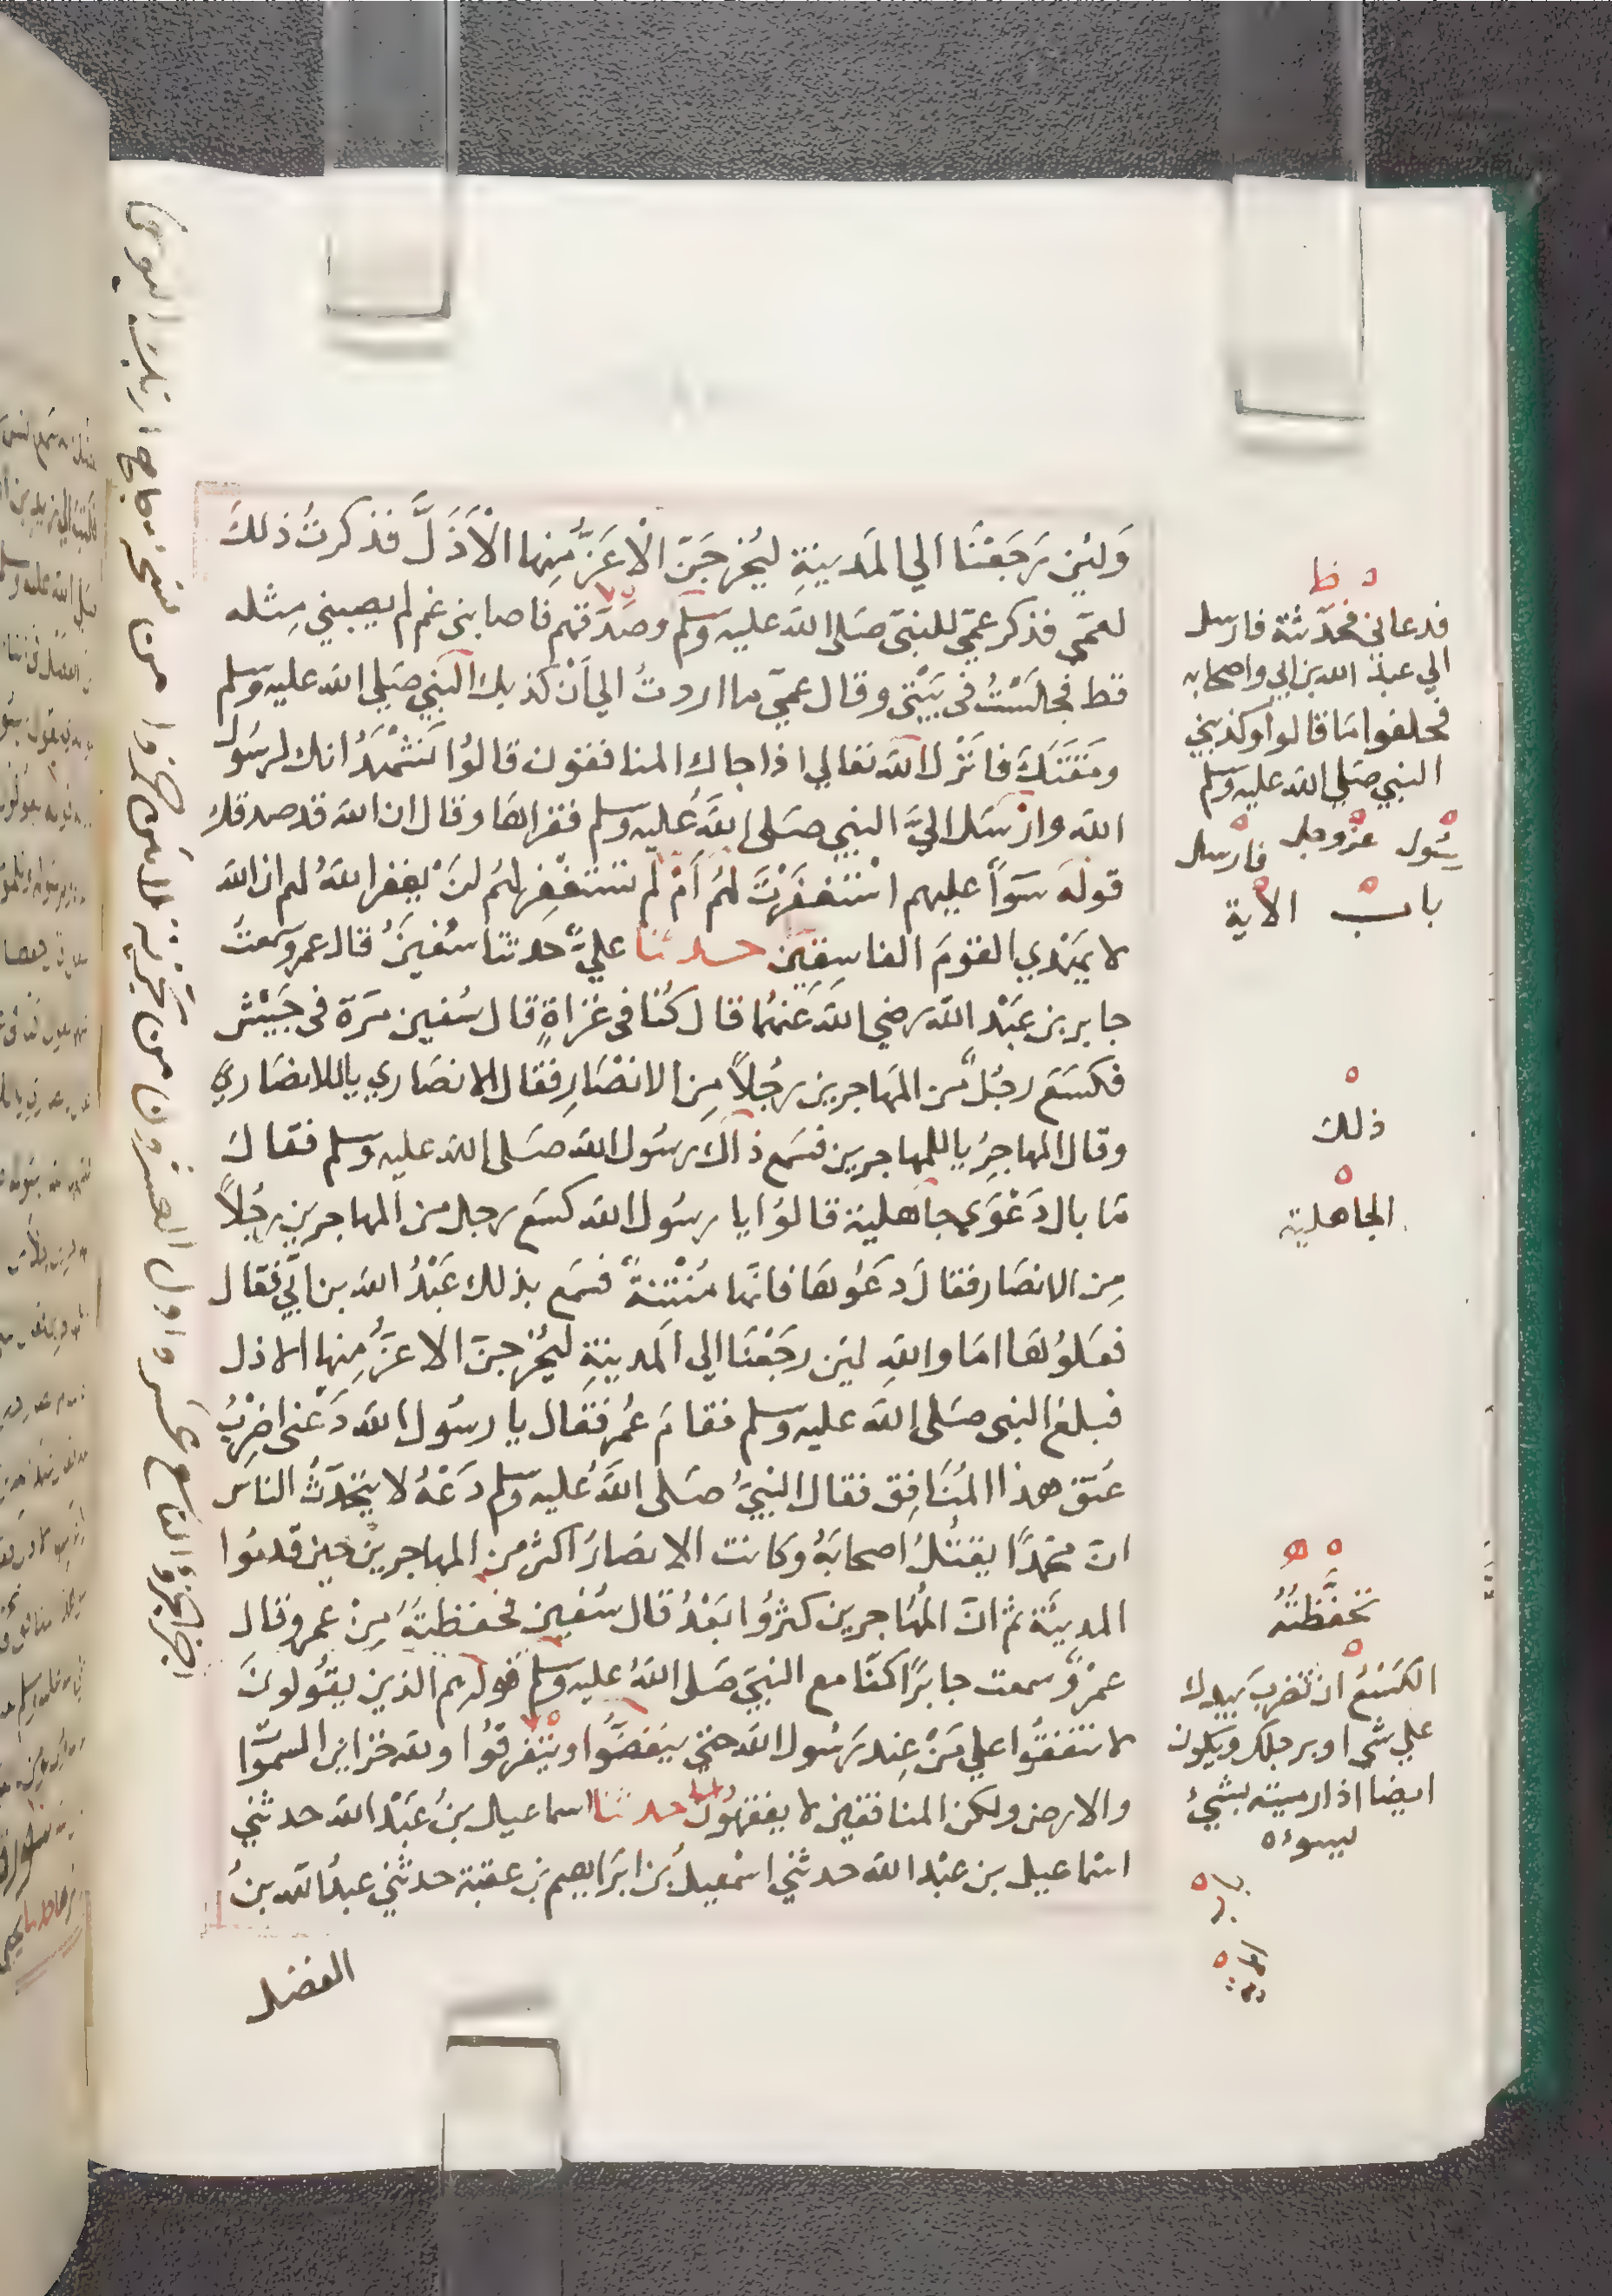 وَلَئِن رَجَعْنَا الي المَدينةِ ليُخرجَنّ الْاعَزُّ مِنها الْأَذَلَّ فذكرتُ ذلكَ
لعمّي فذكر عمّي للنبيّ صَلى الله عليه وسلم وصَدّقهم فاصابنى غم لم يصبني مِثله
قط فجلَسْتُ فى بَيْتى وقال عميّ ما اردتُ الي أنْ كذبك النبي صَلي الله عليه وسلم
ومَقَتَكَ فانْزل الله تعالي اذا جاك المنافقون قالوُا نَشْهَدُ انك لرسَول
الله وارْسَل اليَّ النبي صَلى اللهَ عليه وسلم فقراها وقال ان الله قد صدقك
قولَه سَوَاً عليهم اسْتَغفَرْتَ لهُم أمْ لم تستغْفِر لهُم لنْ يغفر اللهُ لهم ان الله
لا يَهْدي القومَ الفاسِقِين حدثنا عليّ حدثنا سُفينَ قال عمر وسمعتُ
جابر بن عَبْد الله رضي الله عَنهُما قال كُنا فى غزاةٍ قال سُفين مَرَة فى جَيْش
فكسَعَ رجُلٌ من المهَاجرين رجُلاً مِن الانصَارِ فقال الانصَاري ياللانصَاري
وقال المهاجِرُ ياللمهاجرين فسَمع ذاك رسُول الله صَلى الله عليه وسلم فقال
مَا بال دَعْوَي جاهلية قالوُا يا رسُول الله كسَع رجل من المهاجرين رجُلاً
مِن الانصَار فقال دَعَوُها فانّها مُنْتنةٌ فسَمع بذلك عَبْدُ الله بن ابيّ فقال
فعَلوُها امَا واللهِ لئِن رجَعْنَا الي المَدينةِ ليُخرِجنّ الاعَزُّ مِنها الاذل
فبلغ النبى صَلى الله عليه وسلم فقامَ عُمر فقال يا رسُول الله دَعْنى اضرِبْ
عُنَق هذا المُنَافِق فقال النبيُّ صَلى اللهُ عليه وسلم دَعْهُ لا يتحَدثُ الناس
انّ محمّدًا يقتُلُ اصحابَهُ وكانت الانصَارُ اكثر من المهاجرين حين قدمُوا
المدينَة ثم انّ المُهَاجرين كثرُوا بَعْدُ قال سُفين فحفظتهُ مِنْ عمرو قال
عمْروٌ سمعت جابرًا كنّا مع النبيّ صَلى اللهُ عليه وسلم قوله هم الذين يقُولونَ
لا تنفقُوا علي مَنْ عِند رَسُول الله حتي يَنفَضُّوا ويتفرقوُا ولله خزاين السموّا
والارض ولكن المنافقين لا يفقهُون حدثنا اسماعيل بنُ عَبْد الله حدثني
اسْماعيل بن عبْد الله حدثني اسْمعيلُ بن ابرَاهيم بن عقبة حدثني عبدُالله بنُ
الفضل
فدعانى فحَدّثتة فارسل
الي عبد الله بن ابي واصحابه
فحلفوا مَا قالوا وكذبني
النبي صَلي الله عليه وسلم
رسُول عزوجل فارسل
باب الاية
ذلك
الجاهلية
تحَفّظتُهُ
الكَسْعُ ان تضربَ بيدك
علي شى او برجلك ويكون
ايضا اذا رميته بشيءُ
يسوءه